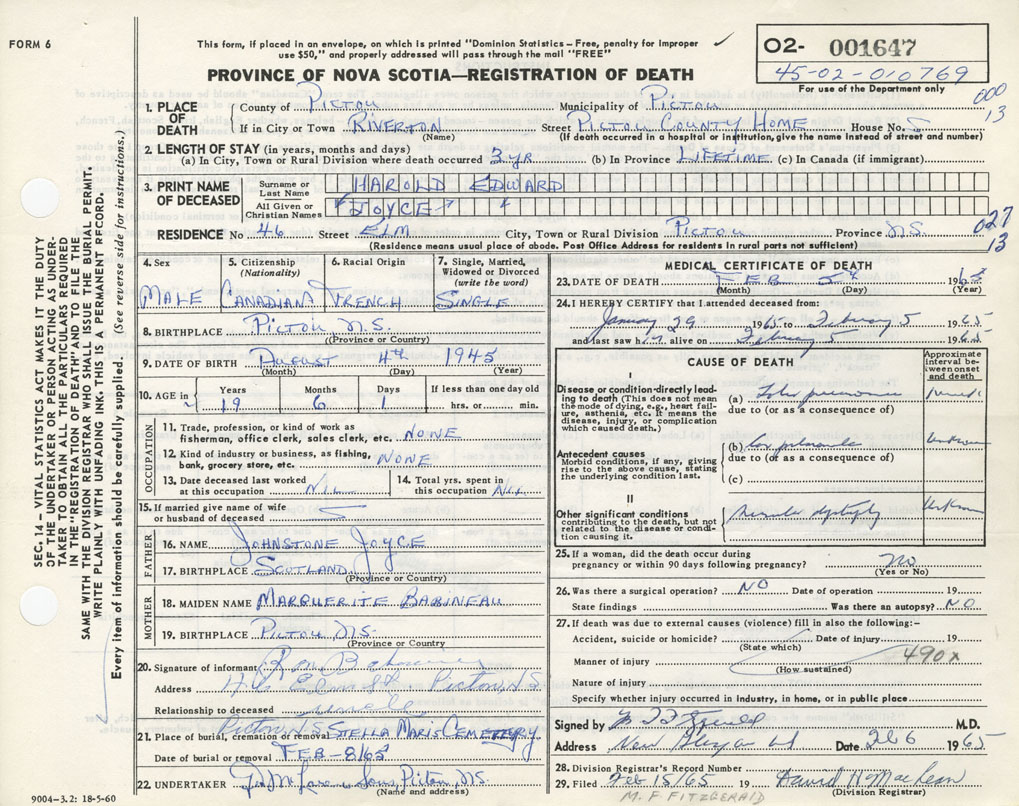 FORM 6
This form, if placed in an envelope, on which is printed "Dominion Statistics – Free, penalty for improper
use $50," and properly addressed will pass through the mail "FREE"
O2- 001647
45-02-010769
For use of the Department only
PROVINCE OF NOVA SCOTIA—REGISTRATION OF DEATH
000
13
1. PLACE OF DEATH
County of Pictou Municipality of Pictou
If in City or Town Riverton Street Pictou County Home House No.
(Name) (If death occurred in a hospital or institution, give the name instead of street and number)
2. LENGTH OF STAY (in years, months and days)
(a) In City, Town or Rural Division where death occurred 3 yr (b) In Province LIFETIME (c) In Canada (if immigrant)
3. PRINT NAME OF DECEASED
Surname or Last Name HAROLD EDWARD
All Given or Christian Names JOYCE
RESIDENCE No 46 Street ELM City, Town or Rural Division Pictou Province N.S.
(Residence means usual place of abode. Post Office Address for residents in rural parts not sufficient)
027
13
4. Sex MALE
5. Citizenship (Nationality) CANADIAN
6. Racial Origin FRENCH
7. Single, Married, Widowed or Divorced (write the word) SINGLE
8. BIRTHPLACE Pictou N.S.
(Province or Country)
9. DATE OF BIRTH August 4th 1945
(Month) (Day) (Year)
10. AGE in Years 19 Months 6 Days 1 If less than one day old hrs. or min.
OCCUPATION
11. Trade, profession, or kind of work as fisherman, office clerk, sales clerk, etc. NONE
12. Kind of industry or business, as fishing, bank, grocery store, etc. NONE
13. Date deceased last worked at this occupation NIL
14. Total yrs. spent in this occupation NIL
15. If married give name of wife or husband of deceased
FATHER
16. NAME JOHNSTONE JOYCE
17. BIRTHPLACE SCOTLAND
(Province or Country)
MOTHER
18. MAIDEN NAME MARGUERITE BABINEAU
19. BIRTHPLACE Pictou N.S.
(Province or Country
20. Signature of informant
Address Elm St. Pictou, N.S.
Relationship to deceased uncle
21. Place of burial, cremation or removal Pictou N.S. STELLA MARIS CEMETERY
Date of burial or removal FEB-8/65
22. UNDERTAKER Pictou, N.S.
(Name and address)
9004-3.2: 18-5-60
MEDICAL CERTIFICATE OF DEATH
23. DATE OF DEATH FEB 5th 1965
(Month) (Day) (Year)
24. I HEREBY CERTIFY that I attended deceased from:
January 29 1965 to February 5 1965
and last saw h alive on February 5 1965
CAUSE OF DEATH
Approximate interval between onset and death
I
Disease or condition directly leading to death (This does not mean the mode of dying, e.g., heart failure, asthenia, etc. It means the disease, injury, or complication which caused death.)
(a) pneumonia
due to (or as a consequence of)
Antecedent causes
Morbid conditions, if any, giving rise to the above cause, stating the underlying condition last.
(b) Cor pulmonale unknown
due to (or as a consequence of)
(c)
II
Other significant conditions contributing to the death, but not related to the disease or condition causing it.
Muscular dystrophy unknown
25. If a woman, did the death occur during pregnancy or within 90 days following pregnancy? no
(Yes or No)
26. Was there a surgical operation? NO Date of operation 19
State findings Was there an autopsy? NO
27. If death was due to external causes (violence) fill in also the following:–
Accident, suicide or homicide? Date of injury 19
(State which)
Manner of injury 490X
(How sustained)
Nature of injury
Specify whether injury occurred in industry, in home, or in public place
Signed by M.D.
Address New Glasgow Date 1965
28. Division Registrar's Record Number
29. Filed Feb 15/65 19 David H MacLean
(Division Registrar)
M. F. FITZGERALD
SEC. 14 – VITAL STATISTICS ACT MAKES IT THE DUTY
OF THE UNDERTAKER OR PERSON ACTING AS UNDER-
TAKER TO OBTAIN ALL THE PARTICULARS REQUIRED
IN THE "REGISTRATION OF DEATH" AND TO FILE THE
SAME WITH THE DIVISION REGISTRAR WHO SHALL ISSUE THE BURIAL PERMIT.
WRITE PLAINLY WITH UNFADING INK. THIS IS A PERMANENT RECORD.
Every item of information should be carefully supplied. (See reverse side for instructions.)